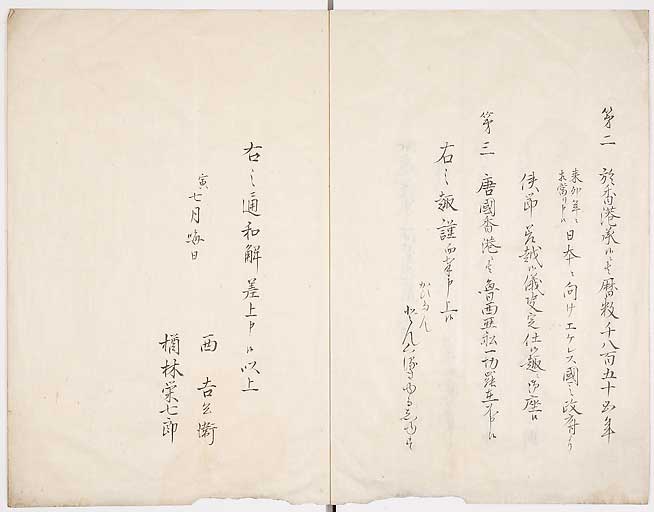 第二 於香港承候者暦数千八百五十五年
来卯年ニ
相當リ申候
日本ニ向けエケレス國之政府ゟ
使節差越候儀決定仕候趣ニ御座候
第三 唐國香港者魯西亜船一切罷在不申候
右之趣謹而奉申上候
かひたん
右之通和解差上申候以上
寅七月晦日
西吉兵衛
楢林栄七郎